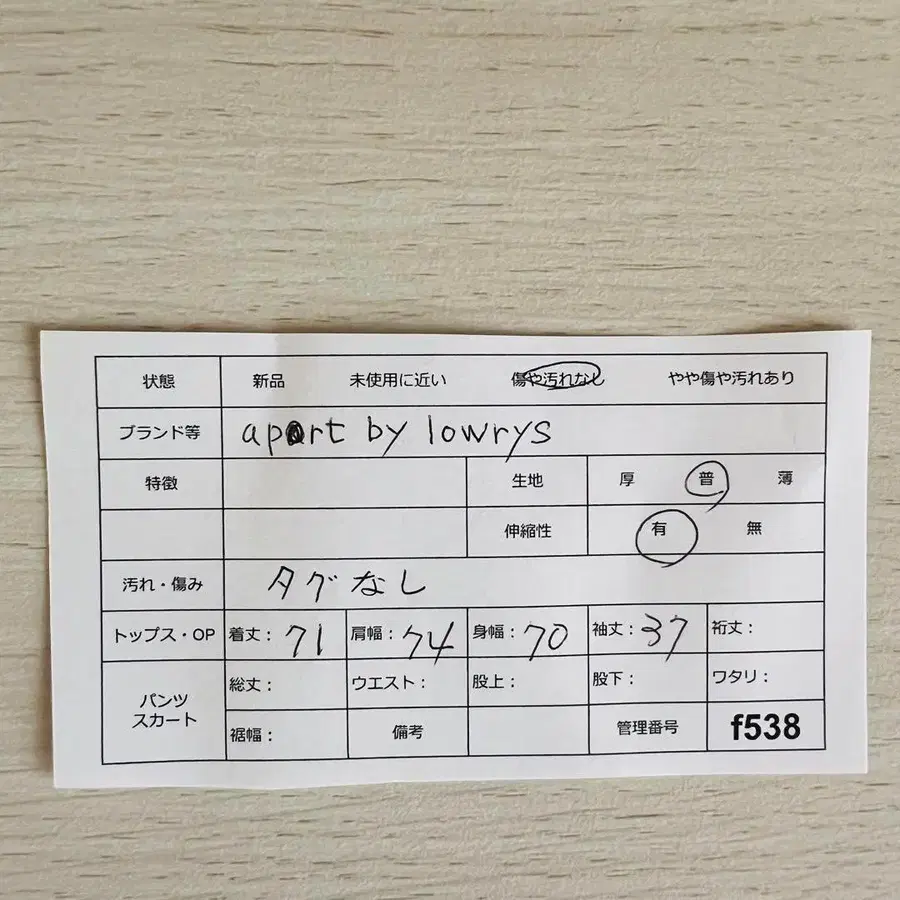 状態 新品 未使用に近い 傷や汚れなし やや傷や汚れあり
ブランド等 apart by lowrys
特徴 生地 厚 普 薄
伸縮性 有 無
汚れ・傷み タグなし
トップス・OP 着丈：71 肩幅：74 身幅：70 袖丈：37 裄丈：
パンツ スカート 総丈： ウエスト： 股上： 股下： ワタリ：
裾幅： 備考 管理番号 f538